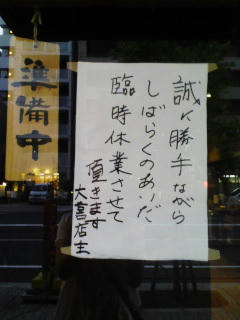 誠に勝手ながら
しばらくのあいだ
臨時休業させて
頂きます
大喜店主
準備中